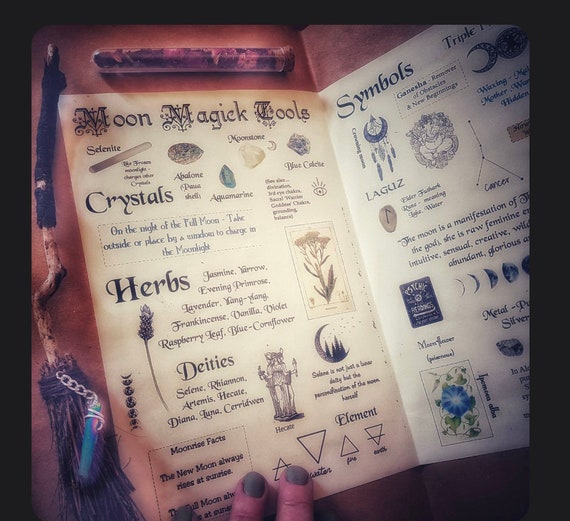 Moon Magick Tools
Selenite
Like Frozen
moonlight -
charges other
Crystals
Abalone
Paua
shell)
Moonstone
Aquamarine
Blue Calcite
(See also...
divination,
3rd eye chakra,
Sacral Warrior
Goddess' Chakra,
grounding,
balance)
Crystals
On the night of the Full Moon - Take
outside or place by a window to charge in
the Moonlight
Herbs
Jasmine, Yarrow,
Evening Primrose,
Lavender, Ylang-ylang,
Frankincense, Vanilla, Violet
Raspberry Leaf, Blue-Cornflower
Deities
Selene, Rhiannon,
Artemis, Hecate,
Diana, Luna, Cerridwen
Hecate
Selene is not just a lunar
deity but the
personification of the moon
herself
Element
water
fire
earth
Moonrise Facts
The New Moon always
rises at sunrise.
Full Moon
Symbols
Triple
Ganesha - Remover
of Obstacles
& New Beginnings
Waxing -
Mother
Hidden
Cancer
LAGUZ
Elder Futhark
Rune - meaning
Lake, Water
The moon is a manifestation of
the gods, she is raw feminine
intuitive, sensual, creative, wild
abundant, glorious
PSYCHIC
READINGS
Moonflower
(poisonous)
Ipomoea alba
Metal -
Silver